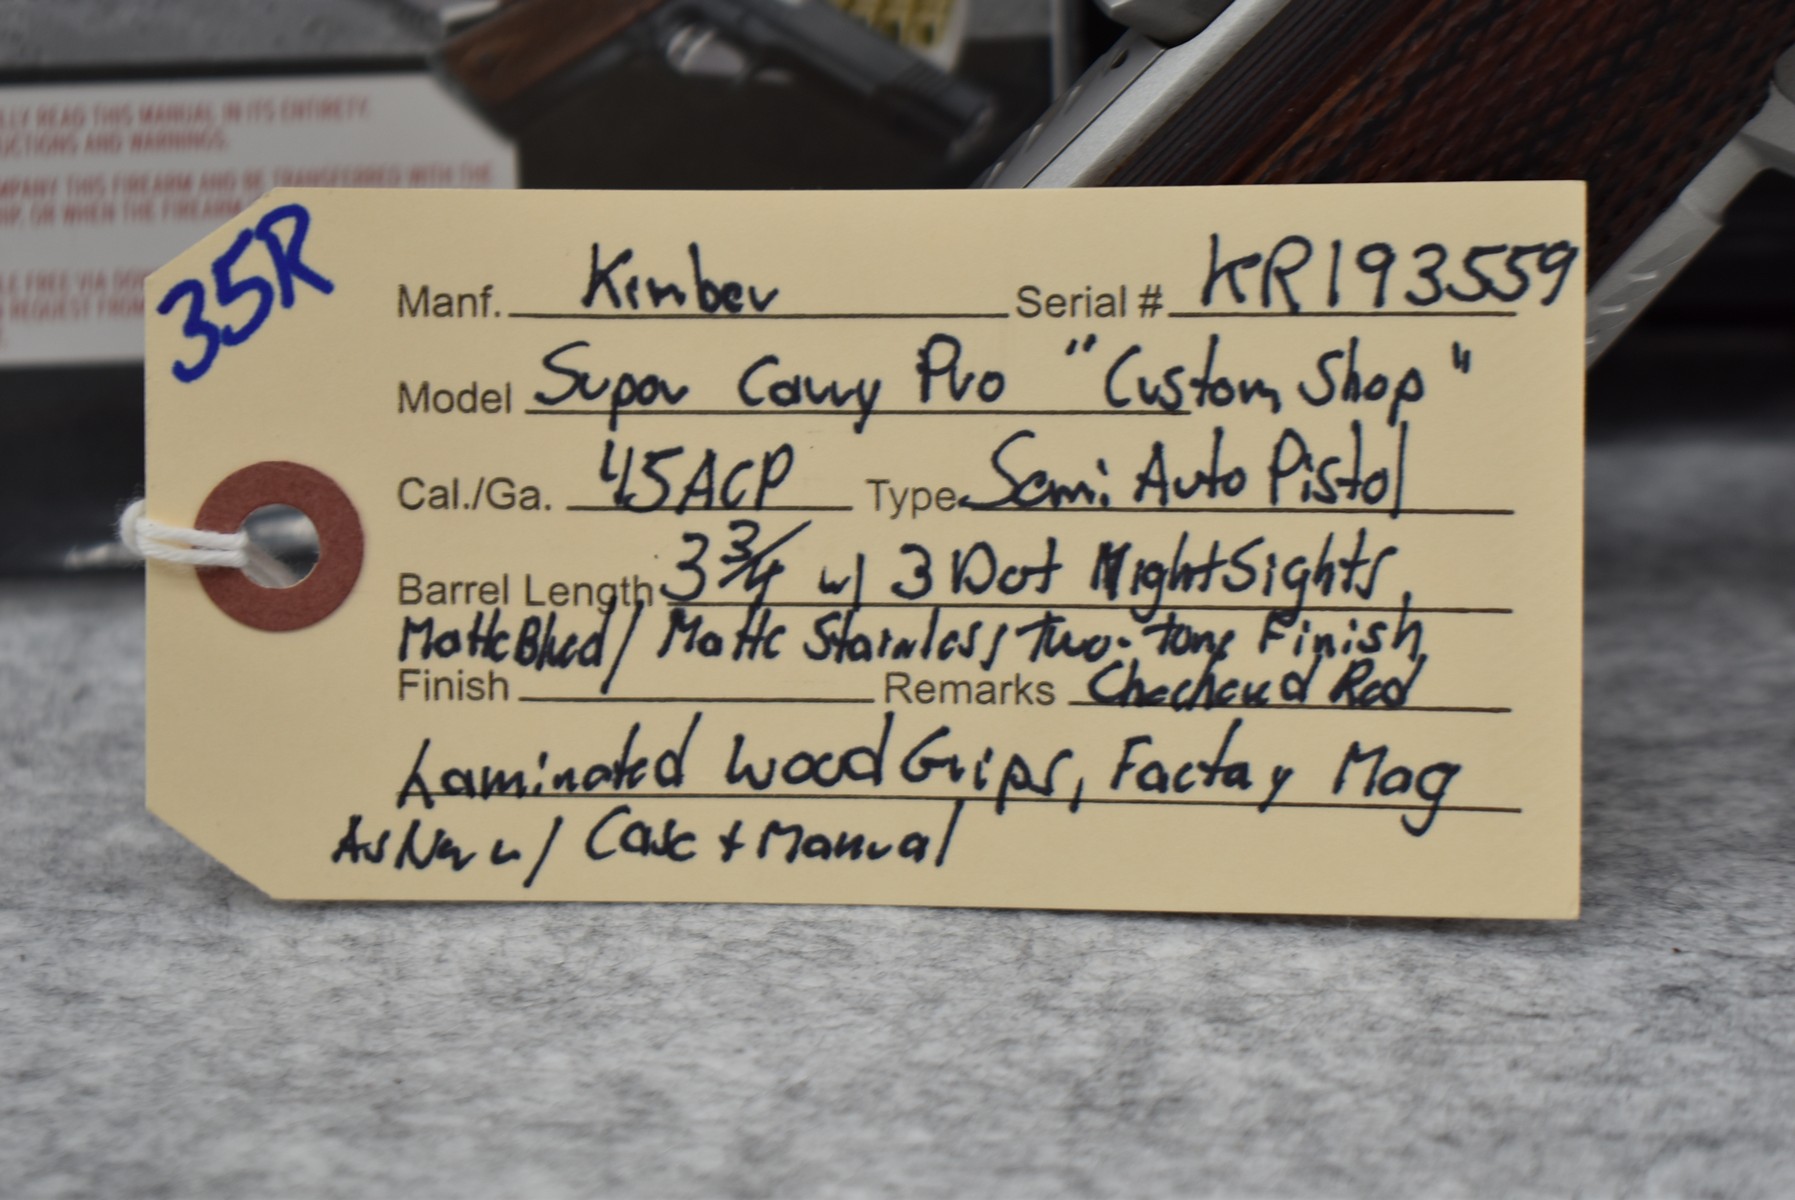 LLY READ THIS MANUAL IN ITS ENTIRETY.
UCTIONS AND WARNINGS.
MPANY THIS FIREARM AND BE TRANSFERRED WITH THE
OR WHEN THE FIREARM
LE FREE VIA
REQUEST FROM
35R
Manf. Kimber Serial # KR193559
Model Super Carry Pro "Custom Shop"
Cal./Ga. 45ACP Type Semi Auto Pistol
Barrel Length 3 3/4 w/ 3 Dot Night Sights,
Matte Blued / Matte Stainless Two-Tone Finish,
Finish Remarks Checkered Red
Laminated Wood Grips, Factory Mag
As New w/ Case + Manual